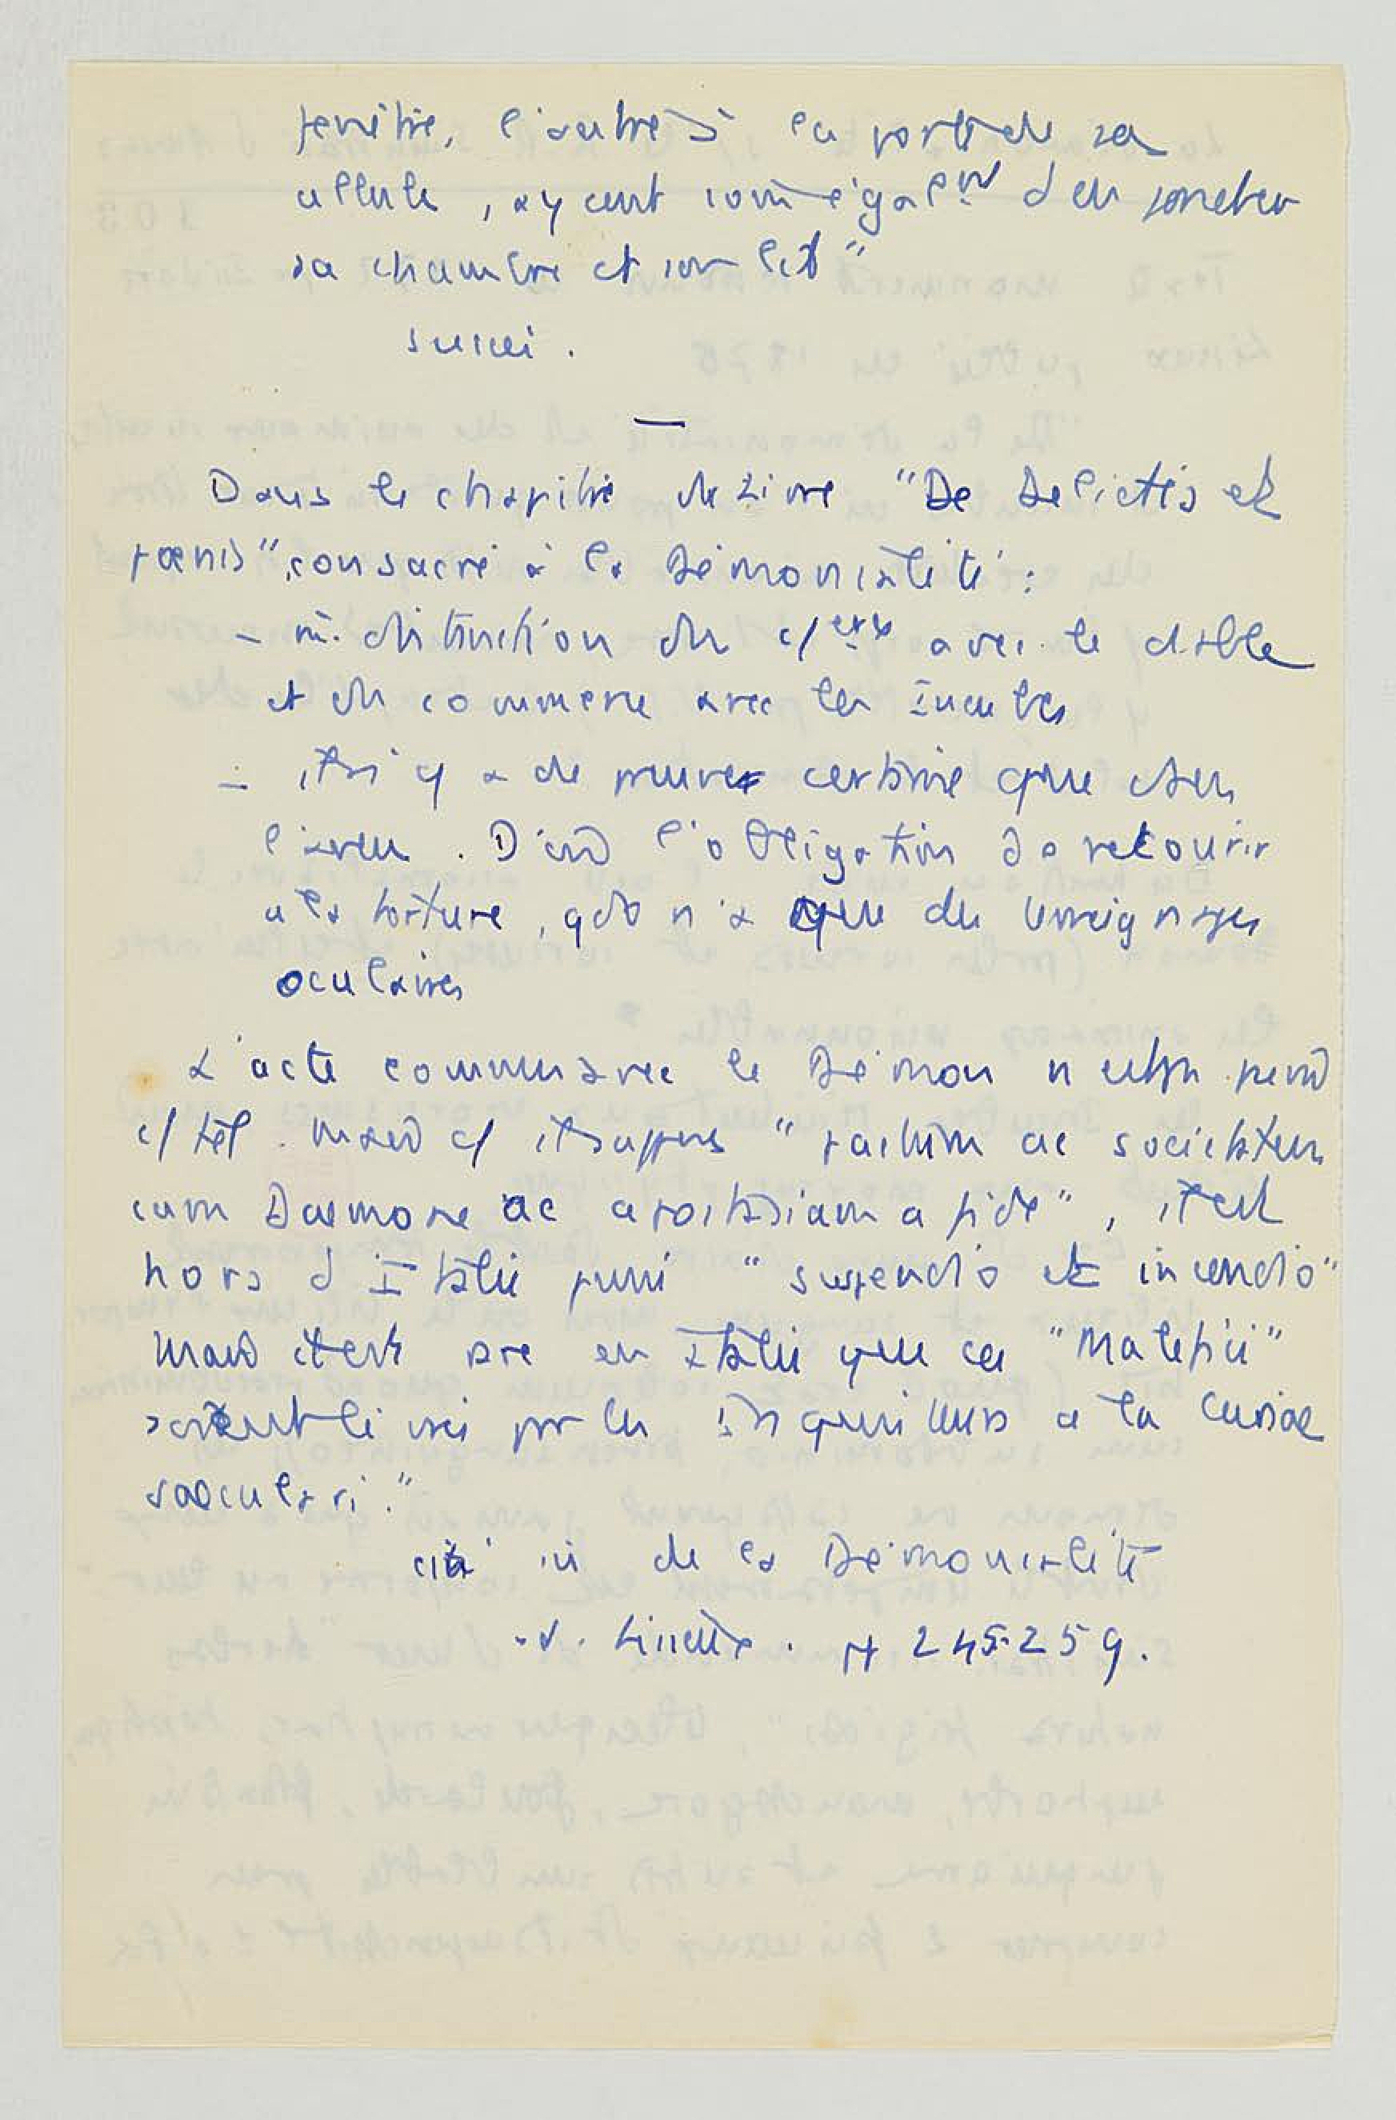 fenêtre, l'autre à la porte de sa
cellule, ayant soin égalnt d'en joncher
sa chambre et son lit"
suivi.
—
Dans le chapitre du Livre "De Delictis et
poenis", consacré à la Démonialité:
- m. distinction du c/ avec le diable
et du commerce avec les Incubes
- il n'y a de preuve certaine que dans
l'aveu. D'où l'obligation de recourir
a la torture, qd on n'a que des témoignages
oculaires
L'acte commis avec le Démon n'est pas puni
c/ tel. mais c/ il suppose "pactum ac societatem
cum Daemone ac apostasiam a fide", il est
hors d'Italie puni "suspendio et incendio"
Mais il est rare en Italie que ces "Malefici"
soient livrés par les Inquisiteurs a la Curiae
saeculari."
cité in de la Démonialité
Sinistrari. pp 245-259.